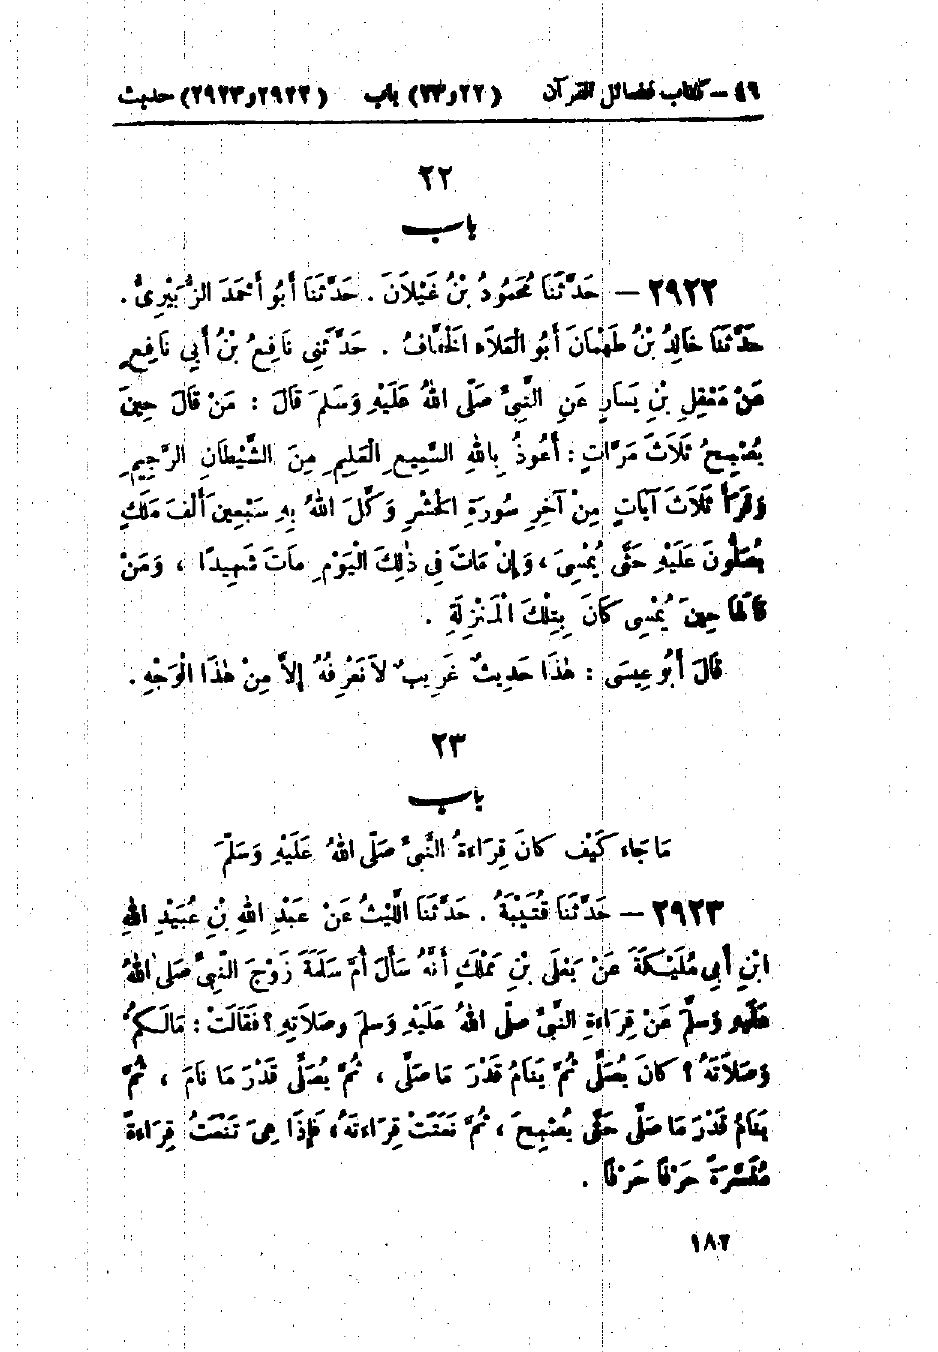 ٤٦ – كتاب فضائل القرآن (٢٢ و ٢٣) باب (٢٩٢٢ و ٢٩٢٣) حديث
٢٢
باب
٢٩٢٢ — حَدَّثَنَا مَحْمُودُ بْنُ غَيْلَانَ . حَدَّثَنَا أَبُو أَحْمَدَ الزُّبَيْرِىُّ .
حَدَّثَنَا خَالِدُ بْنُ طَهْمَانَ أَبُو الْعَلَاَءِ الْخَفَّافُ . حَدَّثَنِى نَافِعُ بْنُ أَبِى نَافِعٍ
عَنْ مَعْقِلِ بْنِ يَسَارٍ عَنِ النَّبِىِّ صَلَّى اللهُ عَلَيْهِ وَسَلمَ قَالَ : مَنْ قَالَ حِينَ
يُصْبِحُ ثَلَاثَ مَرَّاتٍ : أَعُوذُ بِاللهِ السَّمِيعِ الْعَلِيمِ مِنَ الشَّيْطَانِ الرَّجِيمِ
وَقَرَأَ ثَلَاثَ آيَاتٍ مِنْ آخِرِ سُورَةِ الْحَشْرِ وَكَّلَ اللهُ بِهِ سَبْعِينَ أَلْفَ مَلَكٍ
يُصَلُّونَ عَلَيْهِ حَتَّى يُمْسِىَ ، وَإِنْ مَاتَ فِى ذٰلِكَ الْيَوْمِ مَاتَ شَهِيدًا ، وَمَنْ
قَالَهَا حِينَ يُمْسِى كَانَ بِتِلْكَ الْمَنْزِلَةِ .
قَالَ أَبُو عِيسَى : هٰذَا حَدِيثٌ غَرِيبٌ لاَ نَعْرِفُهُ إِلاَّ مِنْ هٰذَا الْوَجْهِ .
٢٣
باب
مَا جَاء كَيْفَ كَانَ قِرَاءةُ النَّبىِّ صَلَّى اللهُ عَلَيْهِ وَسَلَّمَ
٢٩٢٣ — حَدَّثَنَا قُتَيْبَةُ . حَدَّثَنَا اللَّيْثُ عَنْ عَبْدِ اللهِ بْنِ عُبَيْدِ اللهِ
ابْنِ أَبِى مُلَيْكَةَ عَنْ يَعْلَى بْنِ مَمْلَكٍ أَنَّهُ سَأَلَ أُمَّ سَلَمَةَ زَوْجَ النَّبِىِّ صَلى اللهُ
عَلَيْهِ وَسلَّمَ عَنْ قِرَاءةِ النَّبىِّ صلَّى اللهُ عَلَيْهِ وَسلمَ وصَلاَتِهِ ؟ فَقَالَتْ : مَالَـكمُ
وَصَلاَتَهُ ؟ كَانَ يُصَلِّى ثُمَّ يَنَامُ قَدْرَ مَا صَلَّى ، ثُمَّ يُصَلِّى قَدْرَ مَا نَامَ ، ثُمَّ
يَنَامُ قَدْرَ مَا صَلَّى حَتَّى يُصْبِحَ ، ثُمَّ نَعَتَتْ قِرَاءتَهُ ، فَإِذَا هِىَ تَنْعَتُ قِرَاءةً
مُفَسَّرَةً حَرْفًا حَرْفًا .
١٨٢